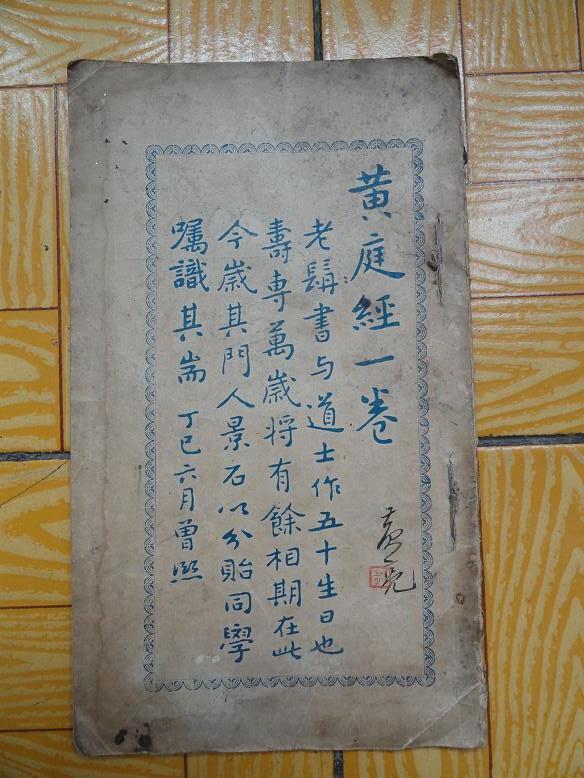 黄庭經一卷
老髯書与道士作五十生日也
壽専萬歲将有餘相期在此
今歲其門人景石以分貽同學
囑識其耑 丁巳六月曾熙